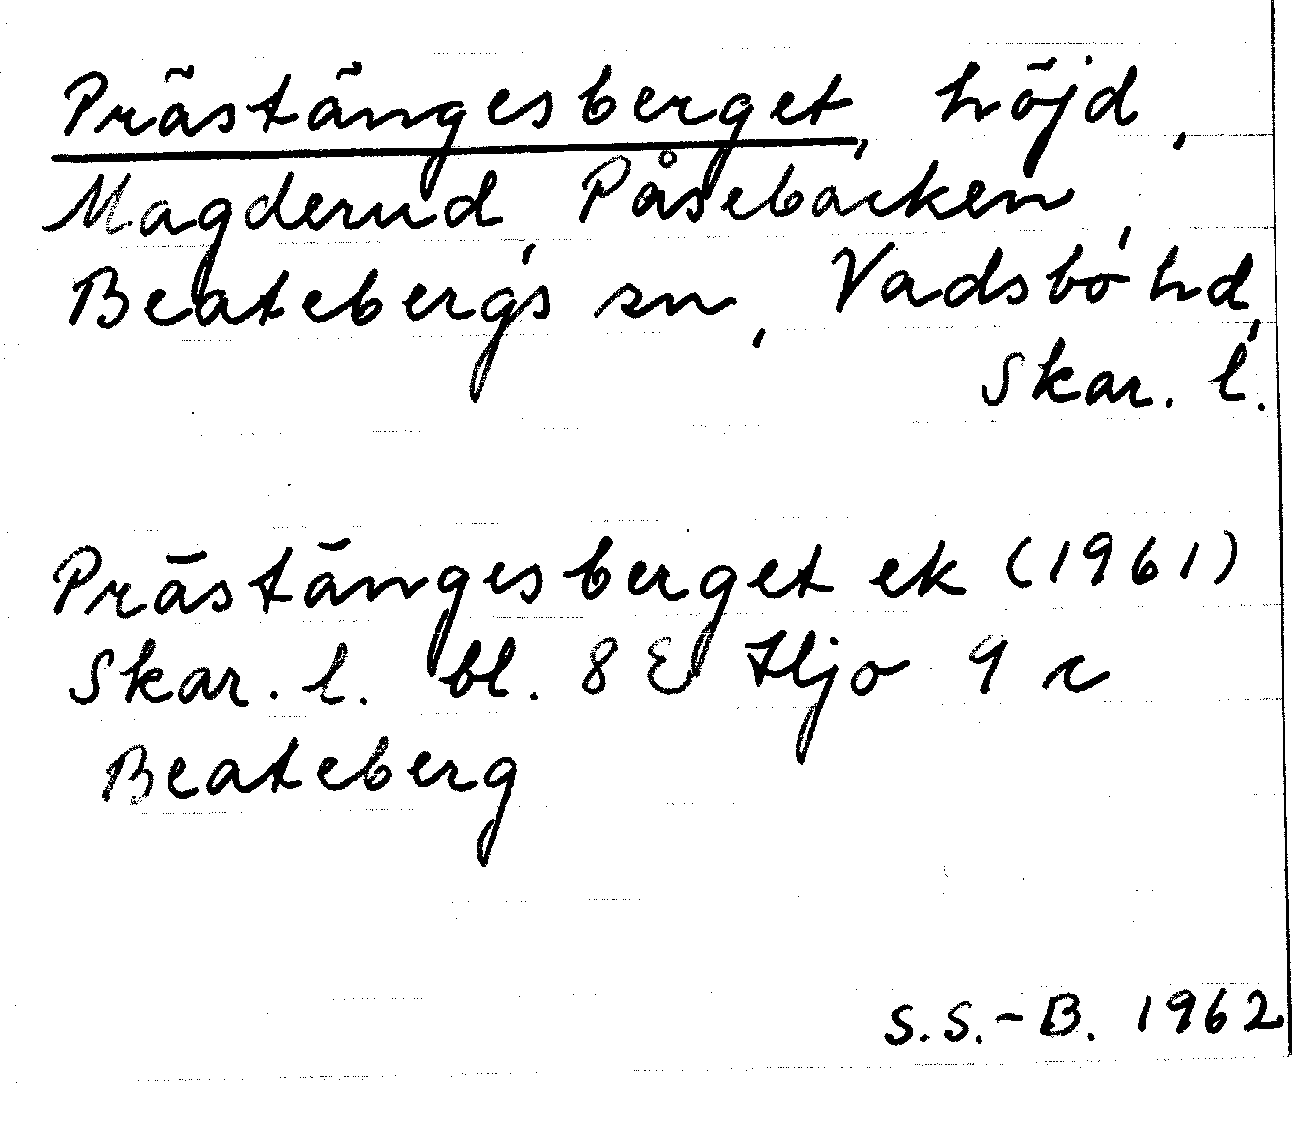 Prästängesberget, höjd,
Magderud, Påsebäcken,
Beatebergs sn, Vadsbo hd,
Skar. l.
Prästängesberget ek (1961)
Skar. l. bl. 8 E Hjo 9 c
Beateberg
S.S.-B. 1962